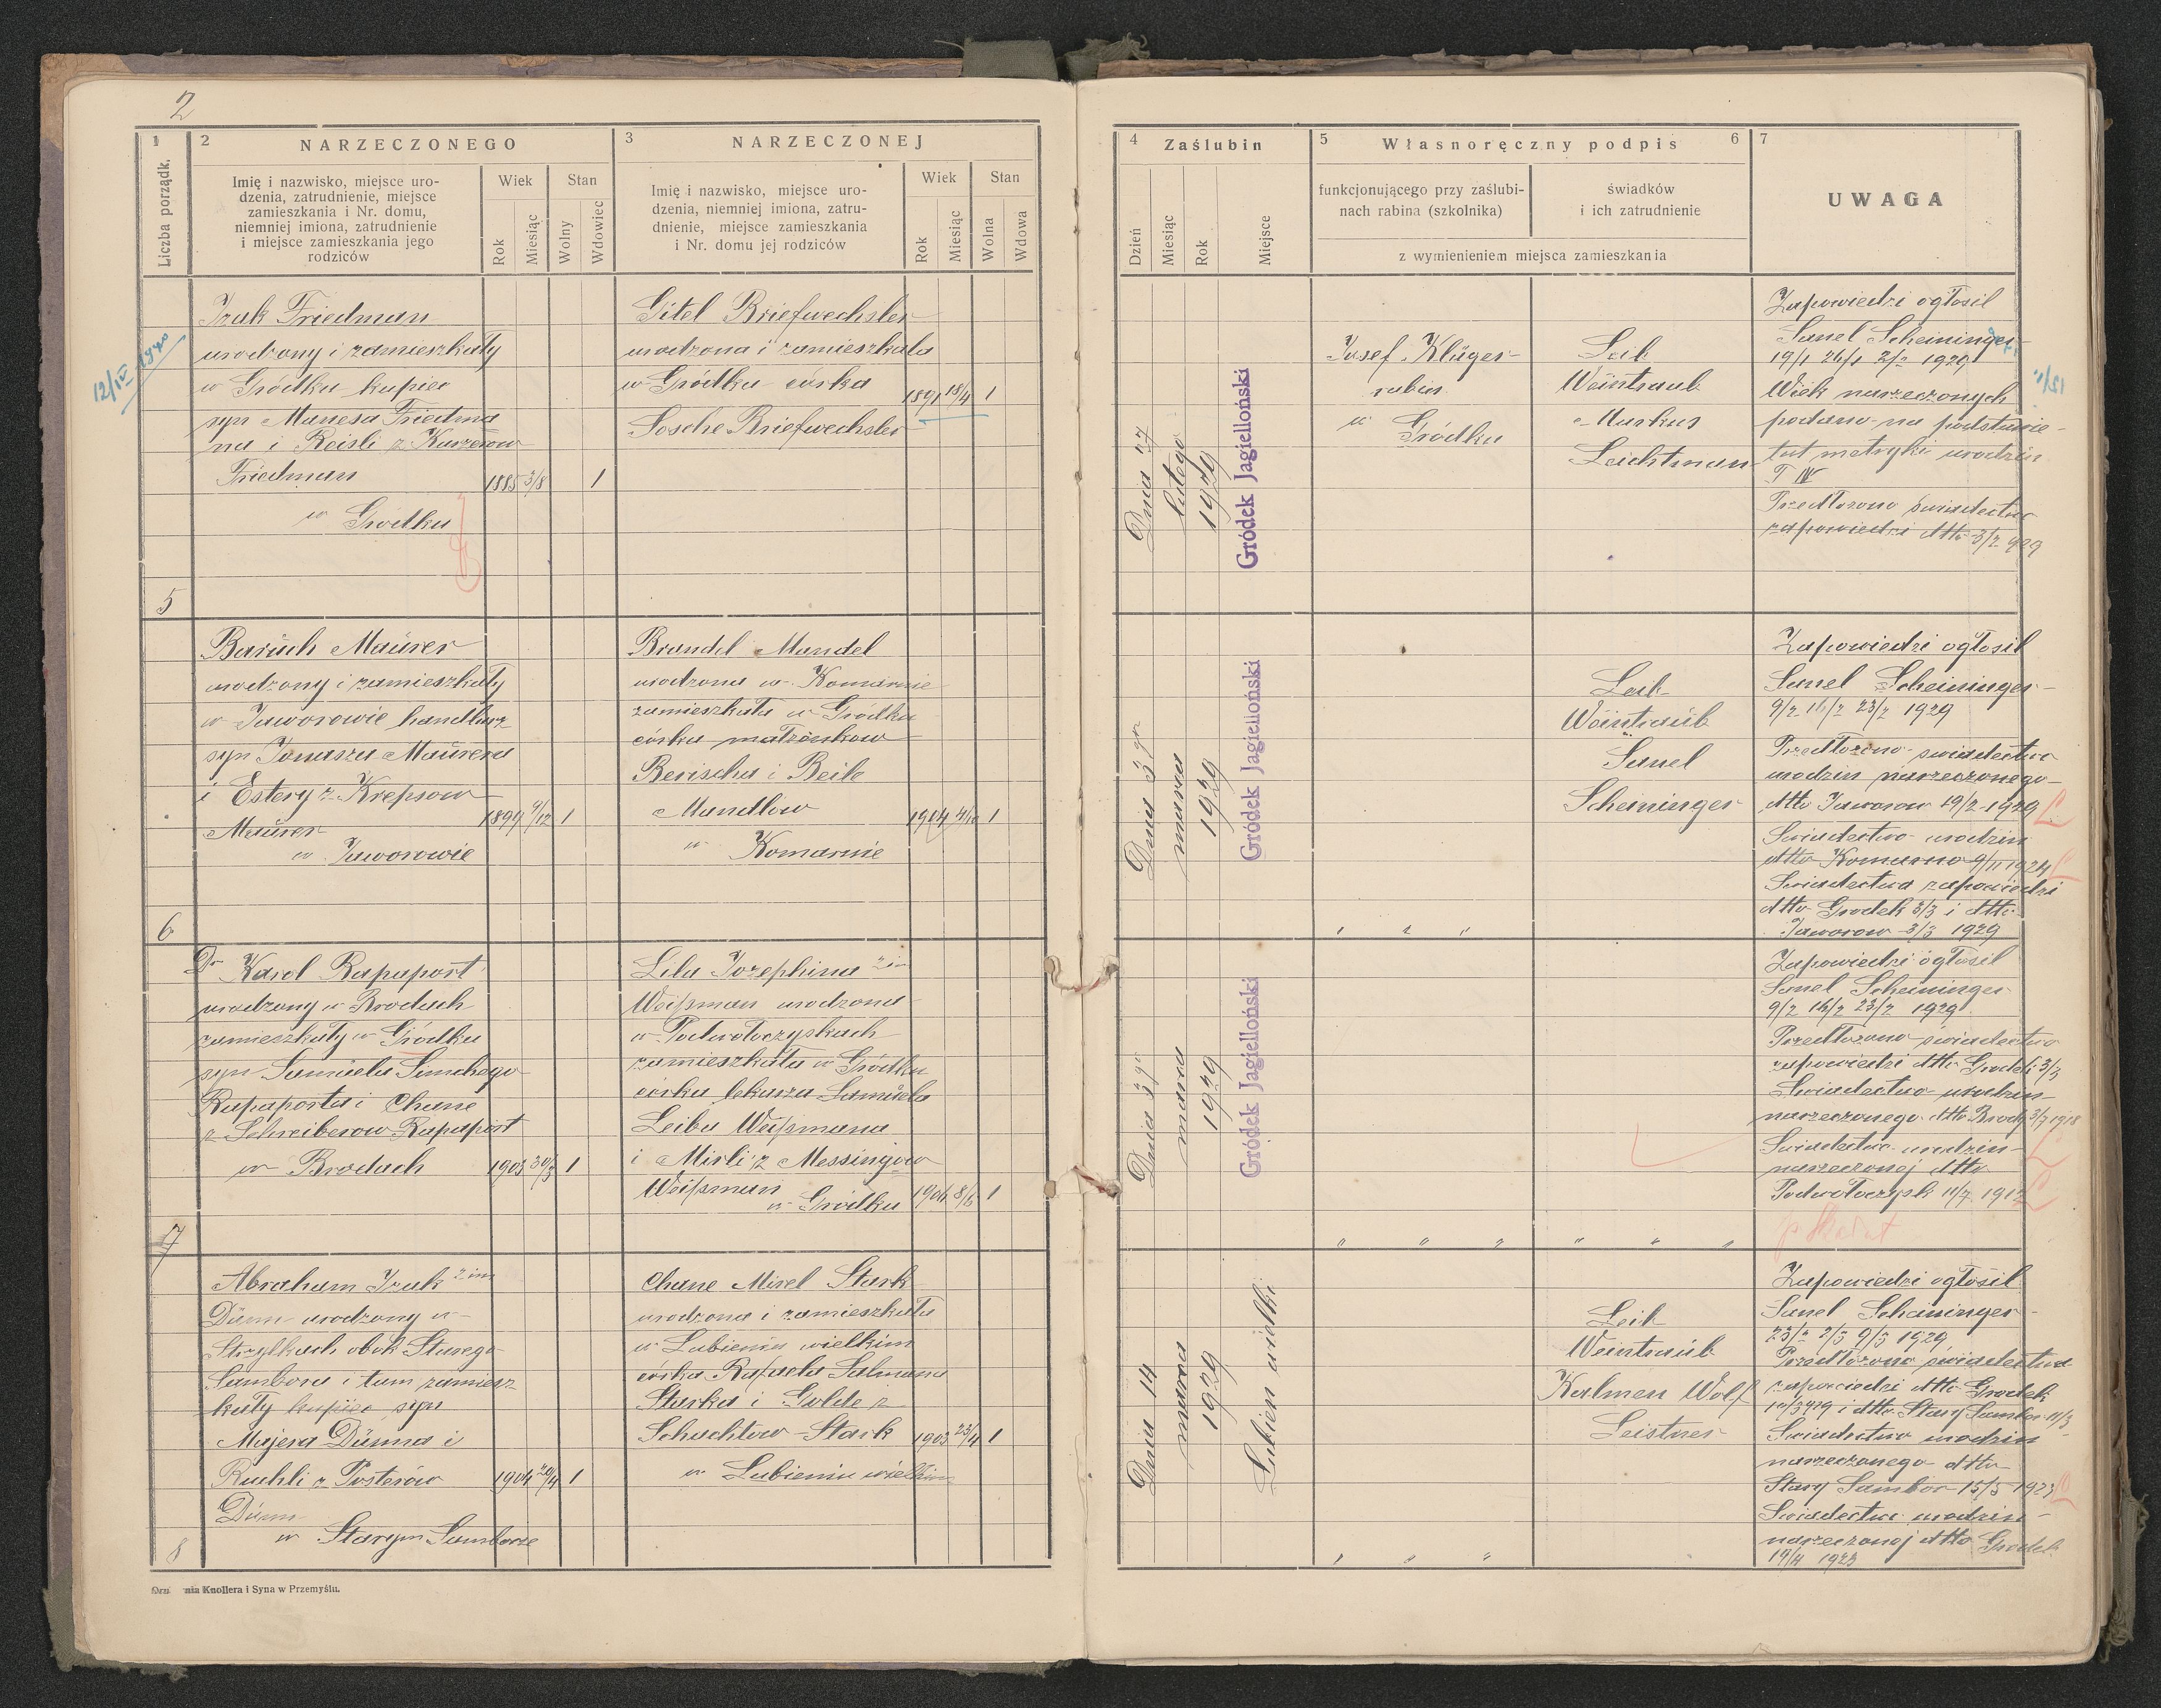 2
1
Liczba porządk.
2
NARZECZONEGO
Imię i nazwisko, miejsce uro-
dzenia, zatrudnienie, miejsce
zamieszkania i Nr. domu,
niemniej imiona, zatrudnienie
i miejsce zamieszkania jego
rodziców
Wiek
Rok
Miesiąc
Stan
Wolny
Wdowiec
3
NARZECZONEJ
Imię i nazwisko, miejsce uro-
dzenia, niemniej imiona, zatru-
dnienie, miejsce zamieszkania
i Nr. domu jej rodziców
Wiek
Rok
Miesiąc
Stan
Wolna
Wdowa
4
Zaślubin
Dzień
Miesiąc
Rok
Miejsce
5
Własnoręczny podpis
6
funkcjonującego przy zaślubi-
nach rabina (szkolnika)
świadków
i ich zatrudnienie
z wymienieniem miejsca zamieszkania
7
UWAGA
12/IV 1940
Izak Friedman
urodzony i zamieszkały
w Gródku kupiec
syn Manesa Friedma
na i Reisli z Kurzerow
Friedman
1885 3/8 1
w Gródku
5
Gitel Briefwechsler
urodzona i zamieszkała
w Gródku córka
1891 18/4 1
Sosche Briefwechsler
Dnia 17
lutego
1929
Gródek Jagielloński
Josef Klüger
rabin
w Gródku
Leib
Weintraub
Markus
Leichtman
Zapowiedzi ogłosil
Sanel Scheininger
19/1 26/1 2/2 1929
Wiek narzeczonych
podano na podstawie
tut metryki urodzin
T IV
Przedłozono świadectwo
zapowiedzi dtto 3/2 929
Baruch Maurer
urodzony i zamieszkały
w Jaworowie handlarz
syn Jonasza Maurera
i Estery z Krepsow
1899 9/12 1
Maurer
w Jaworowie
6
Brandel Mandel
urodzona w Komarnie
zamieszkała w Gródku
córka małżonkow
Berischa i Beile
Mandlow
1904 4/10 1
w Komarnie
Dnia 3 go
marca
1929
Gródek Jagielloński
" " "
Leib
Weintraub
Sanel
Scheininger
Zapowiedzi ogłosil
Sanel Scheininger
9/2 16/2 23/2 1929
Przedłozono świadectwo
urodzin narzeczonego
dtto Jaworow 19/2 1929
Swiadectwo urodzin
dtto Komarno 9/11 1924
Swiadectwa zapowiedzi
dtto Grodek 3/3 i dtto
Jaworow 3/3 1929
Dr Karol Rapaport
urodzony w Brodach
zamieszkały w Gródku
syn Samuela Simchego
Rapaporta i Chane
z Schreiberow Rapaport
w Brodach
1903 30/3 1
7
Lila Jozephina 2 im
Weißman urodzona
w Podwołoczyskach
zamieszkała w Gródku
córka lekarza Samuela
Leiba Weißmana
i Mirli z Messingow
Weißman
w Gródku
1906 8/6 1
Dnia 3 go
marca
1929
Gródek Jagielloński
" " "
" " "
Zapowiedzi ogłosil
Sanel Scheininger
9/2 16/2 23/2 1929
Przedłozono świadectwo
zapowiedzi dtto Grodek 3/3
Swiadectwo urodzin
narzeczonego dtto Brody 3/7 1918
Swiadectwo urodzin
narzeczonej dtto
Podwołoczysk 11/7 1912
Abraham Izak 2 im
Dünn urodzony w
Strzylkach obok Starego
Sambora i tam zamiesz-
kały kupiec syn
Majera Dünna i
Ruchli z Posterów
1904 20/4 1
Dünn
w Starym Samborze
8
Chane Mirel Stark
urodzona i zamieszkała
w Lubieniu wielkim
córka Rafaela Salmana
Starka i Golde z
Schachtow Stark
1903 23/4 1
w Lubieniu wielkim
Dnia 14
marca
1929
Lubien wielki
" " "
Leib
Weintraub
Kalmen Wolf
Leistner
Zapowiedzi ogłosil
Sanel Scheininger
23/2 2/3 9/3 1929
Przedłozono świadectwa
zapowiedzi dtto Grodek
10/3 929 i dtto Stary Sambor 11/3
Swiadectwo urodzin
narzeczonego dtto
Stary Sambor 15/5 1923
Swiadectwo urodzin
narzeczonej dtto Grodek
19/4 1923
nia Knollera i Syna w Przemyślu.